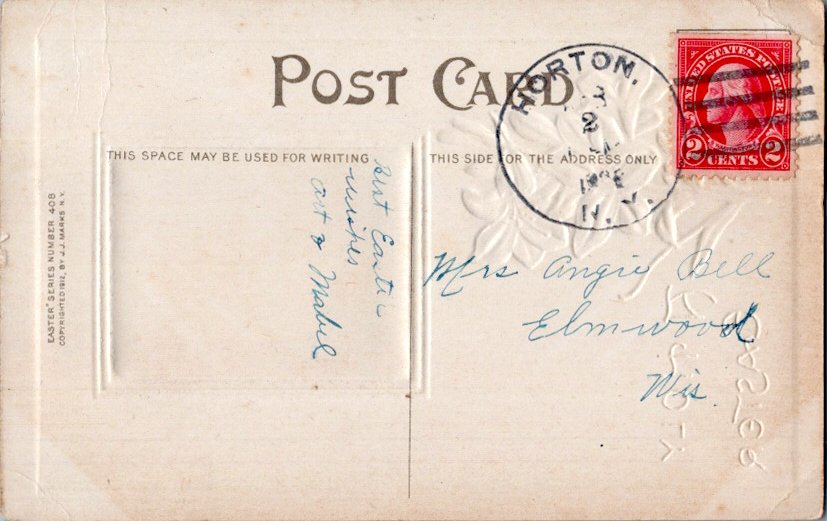 POST CARD
THIS SPACE MAY BE USED FOR WRITING
THIS SIDE FOR THE ADDRESS ONLY
EASTER SERIES NUMBER 408
COPYRIGHTED 1912, BY J.J. MARKS N.Y.
Best Easter
wishes
Art & Mabel
HORTON,
2
N.Y.
UNITED STATES POSTAGE
2 CENTS 2
Mrs Angie Bell
Elmwood
Wis.
EASTER